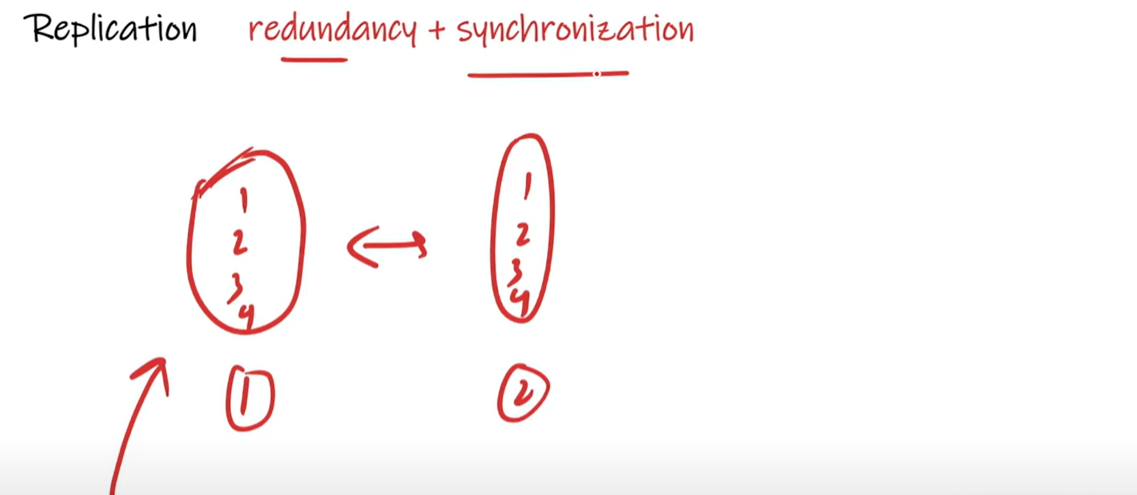 Replication redundancy + synchronization
1 1
2 2
3 3
4 4
1 2